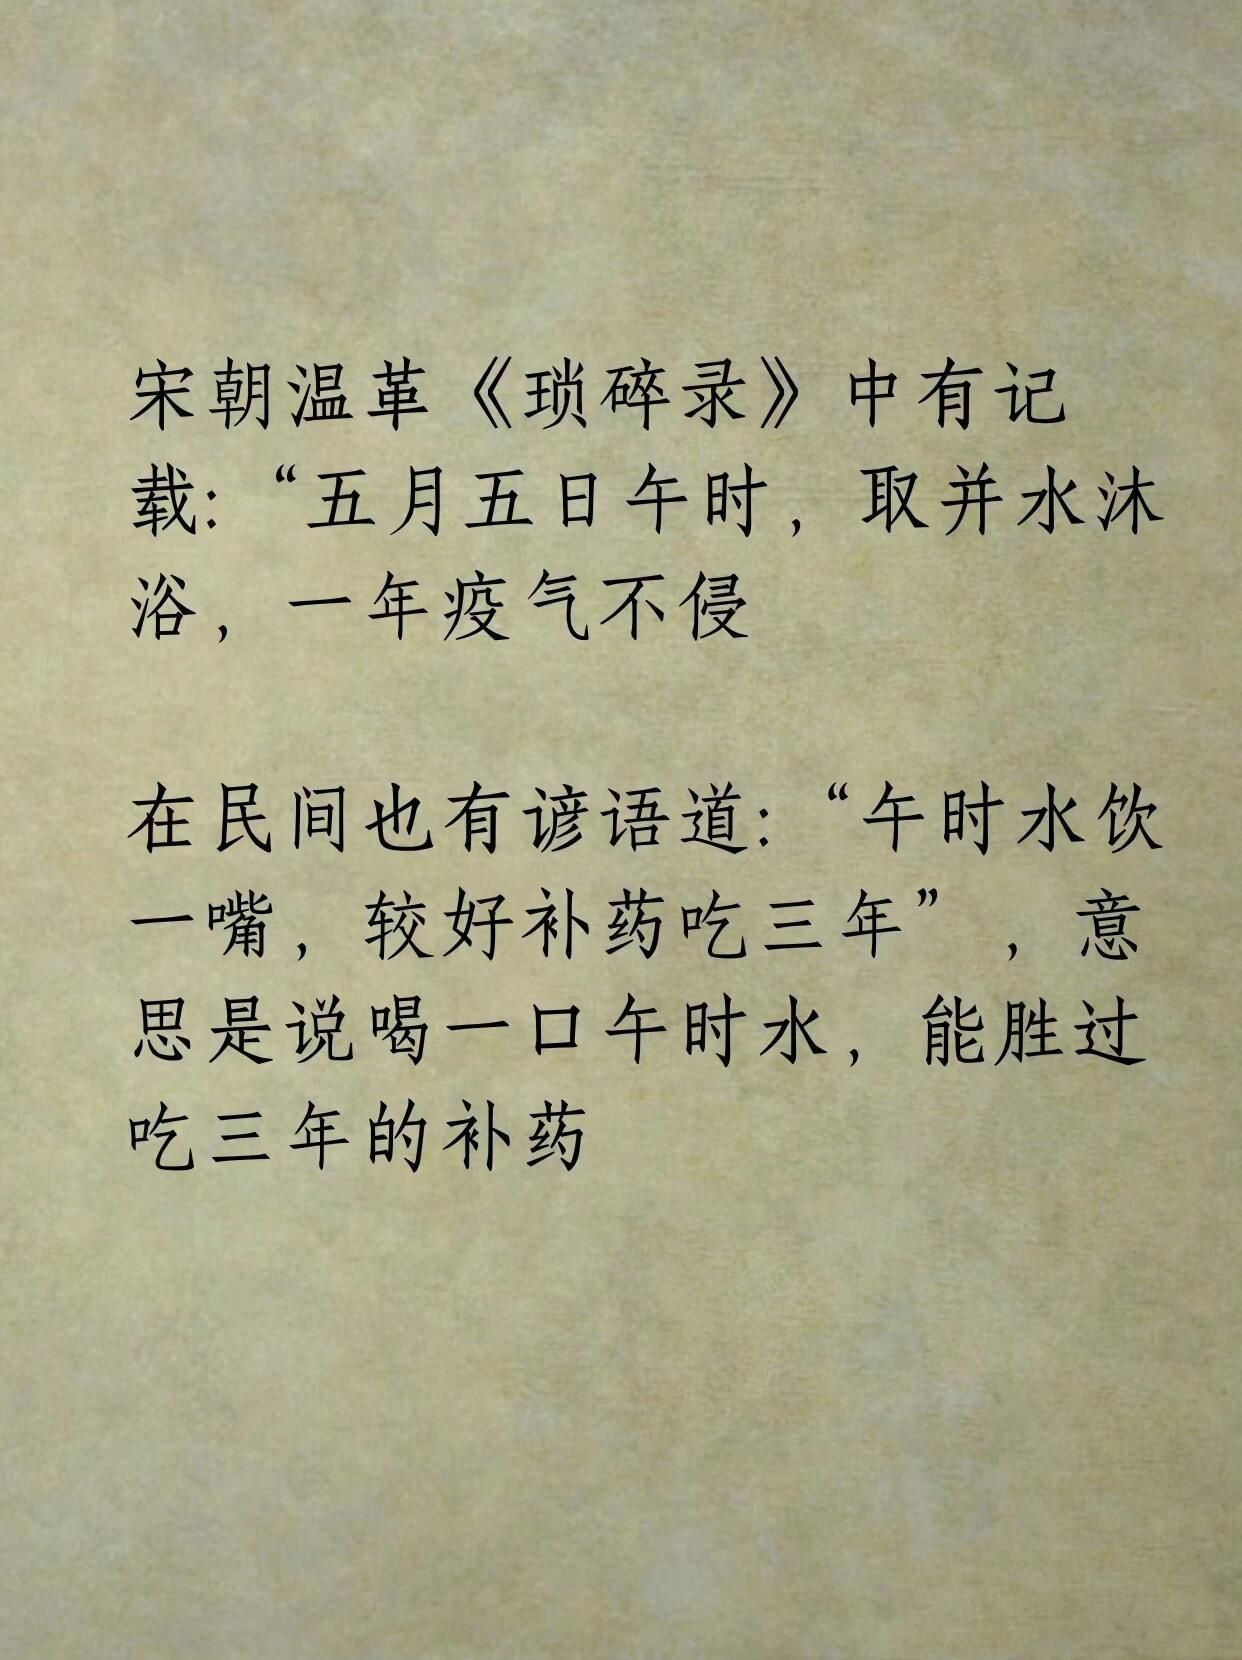 宋朝温革《琐碎录》中有记
载:“五月五日午时，取并水沐
浴，一年疫气不侵
在民间也有谚语道:“午时水饮
一嘴，较好补药吃三年”，意
思是说喝一口午时水，能胜过
吃三年的补药